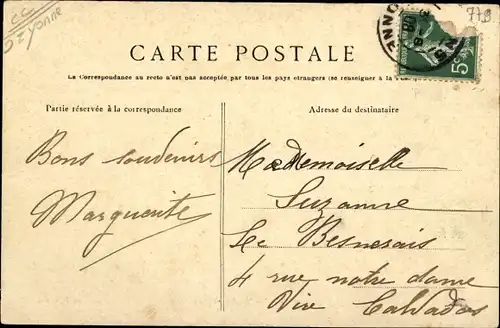 CC
Izyonne
773
CARTE POSTALE
La Correspondance au recto n'est pas acceptée par tous les pays étrangers (se renseigner à la
Partie réservée à la correspondance
Adresse du destinataire
Bons souvenirs
Marguerite
Mademoiselle
Suzanne
Le Besnerais
4 rue notre dame
Vire Calvados
5c